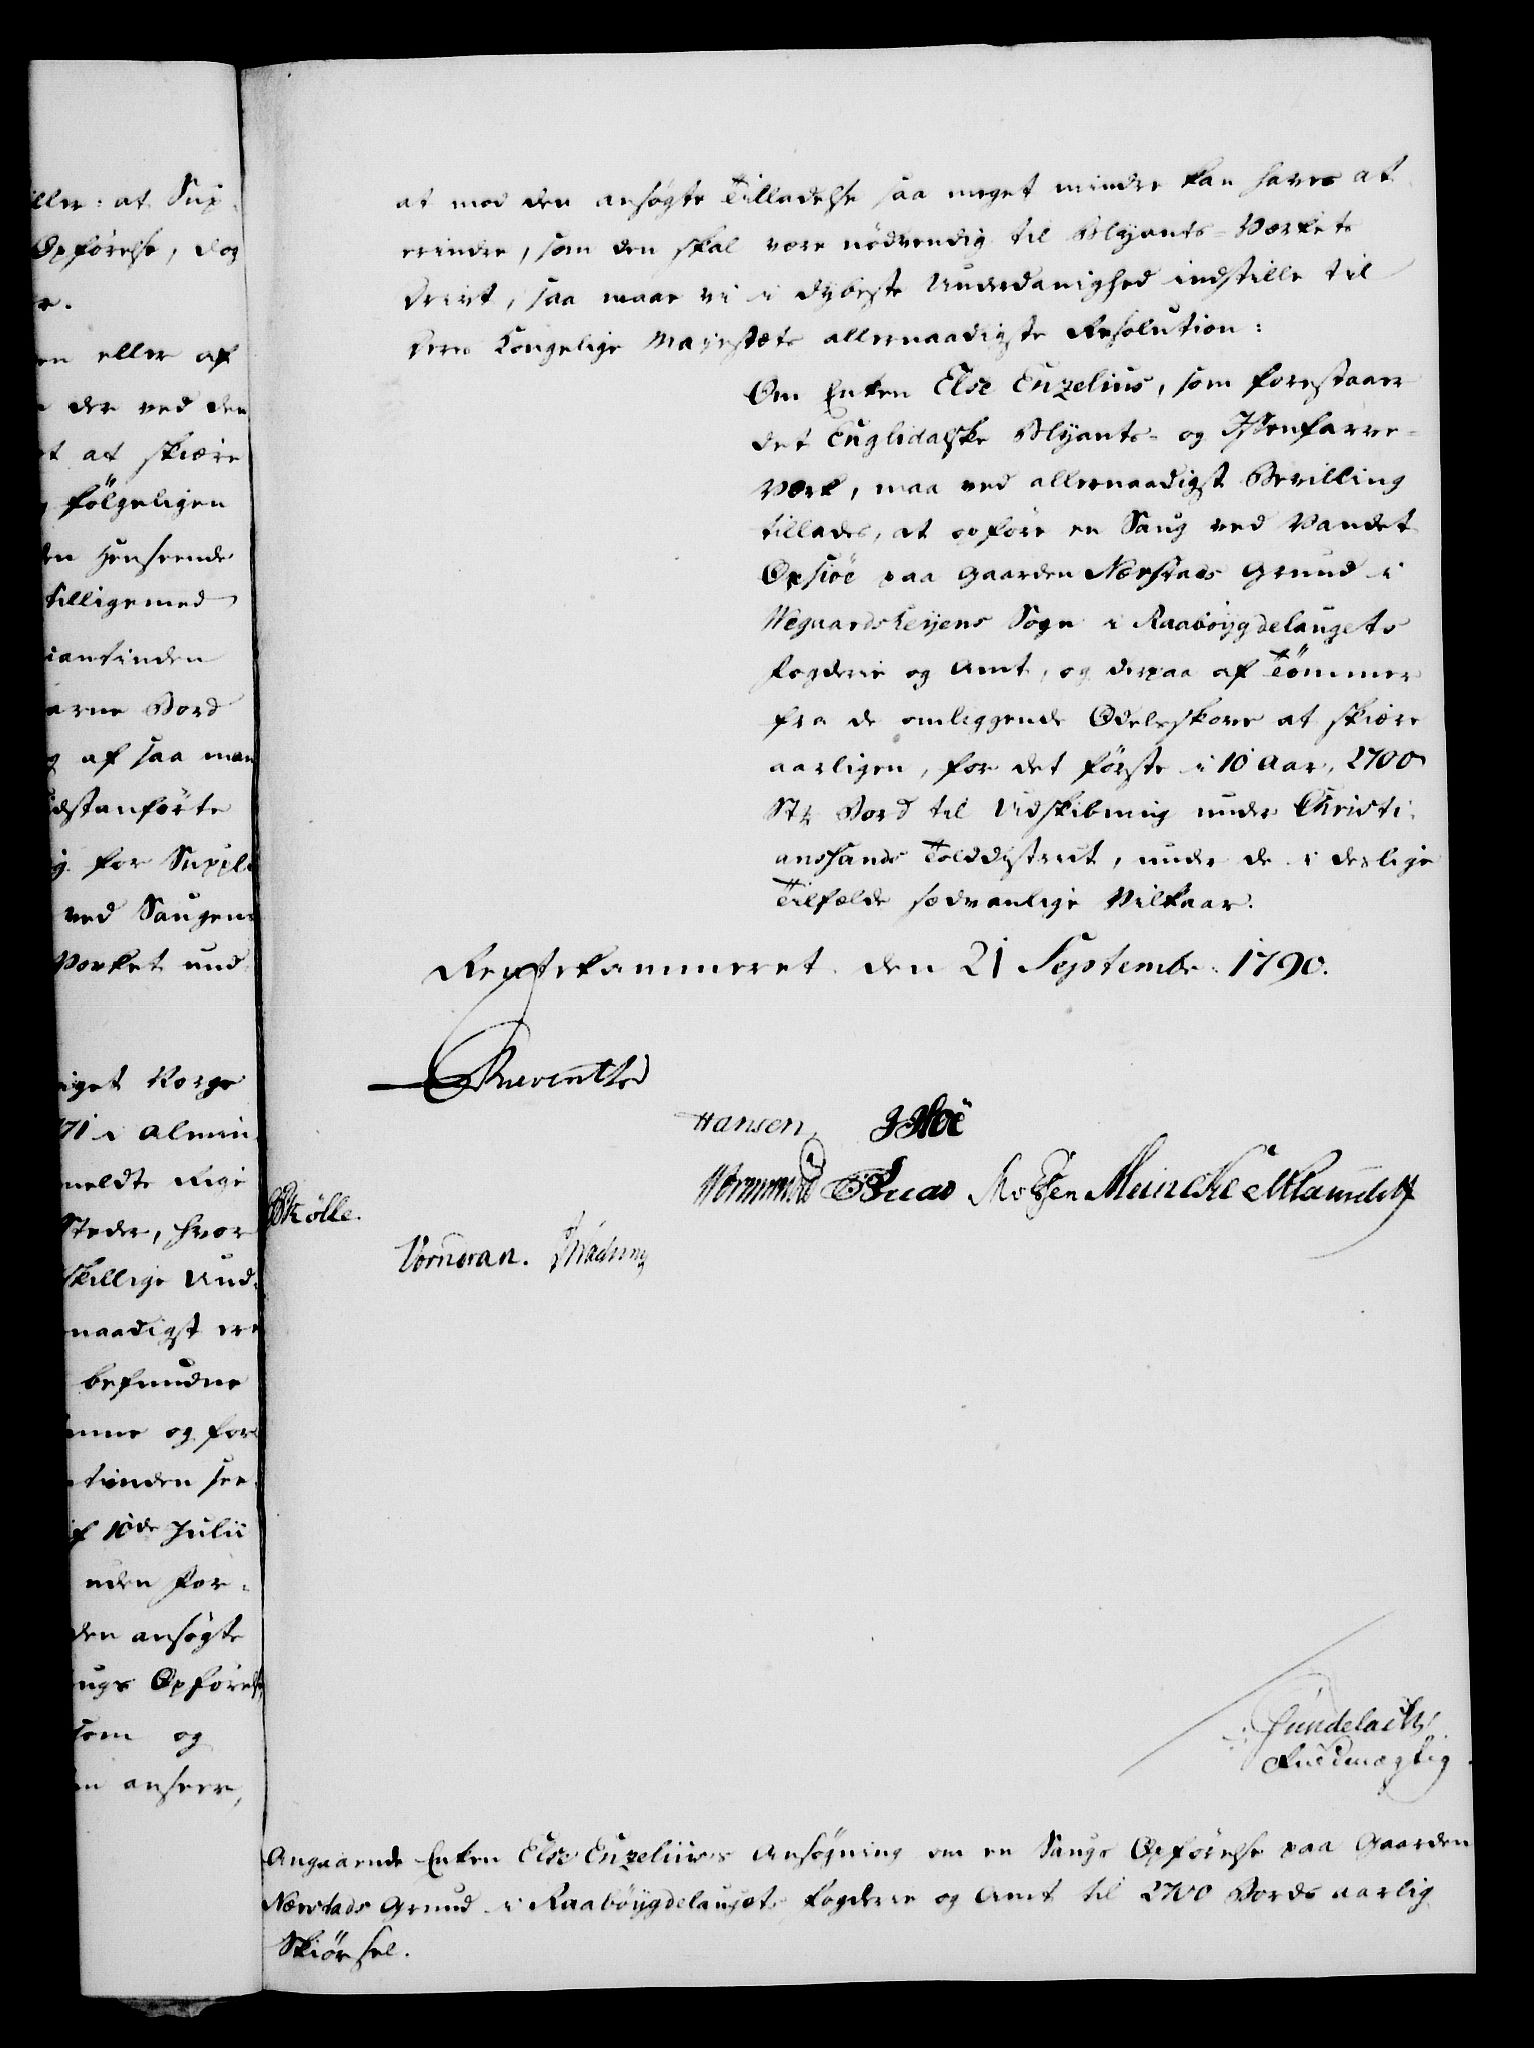 iller: at Sup-
Opførelse, dog
en eller af
der ved den
et at skiære
følgeligen
den Henseende
tilligemed
iantinden
arne Bord
g af saa man
idstanførte
g for Suppl
ved Saugens
Værket und
iget Norge
71 i Almin
meldte Rige
Steder, hvor
skillige Und-
naadigst er
befundne
inne og for
tinden see
af 10de Julii
uden for-
den ansøgte
augs Opførelse
som og
en ansees,
at mod den ansøgte Tilladelse saa meget mindre kan haves at
erindre, som den skal være nødvendig til Blyants-Værkets
Drivt, saa maae vi i dybeste Underdanighed indstille til
Deres Kongelige Majestæts allernaadigste Resolution:
Om Enken Else Enzelius, som forestaaer
det Englidalske Blyants- og Issenfarve-
Værk, maa ved allernaadigst Bevilling
tillades, at opføre en Saug ved Vandet
Opsiøe paa Gaarden Nærstads Grund i
Wegaardsheyens Sogn i Raabøygdelaugets
Fogderie og Amt, og derpaa af Tømmer
fra de omliggende Odelsskove at skiære
aarligen, for det første i 10 Aar, 2700
Stk Bord til Udskibning under Christi-
anssands Tolddistrict, under de i deslige
Tilfælde sædvanlige Vilkaar.
Rentekammeret den 21 Septembr. 1790.
Reventlow
Hansen JHoë
Wormskiold Lucas Moltzen Meincke
Skölle.
Vornoran.
Gundelachs
Fuldmægtig
Angaaende Enken Else Enzelius's Ansøgning om en Saugs Opførelse paa Gaarden
Nærstads Grund i Raabøygdelaugets Fogderie og Amt til 2700 Bords aarlig
Skiørsel.